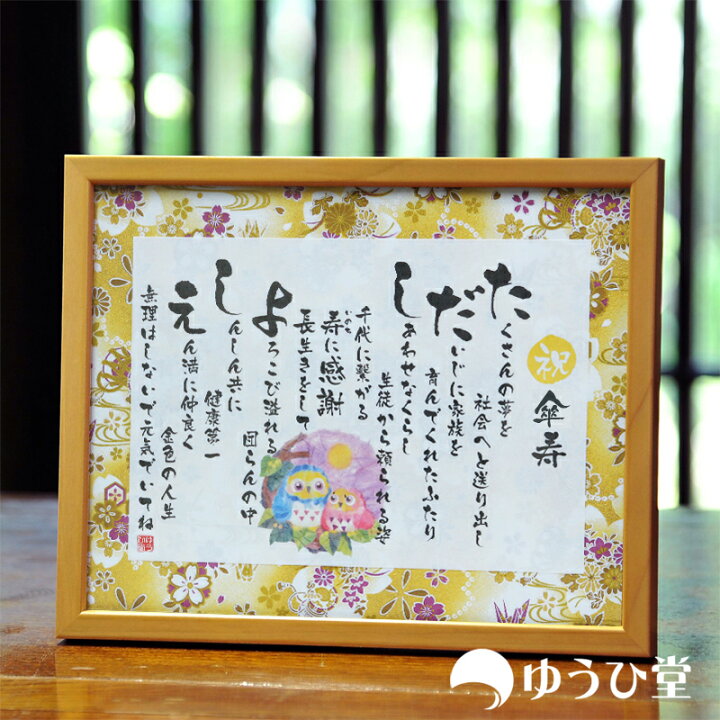 祝 傘寿
たくさんの芽を
社会へと送り出し
だいじに家族を
育んでくれたふたり
しあわせなくらし
生徒から頼られる姿
千代に繋がる
いのち
寿に感謝
長生きをして
よろこび溢れる
団らんの中
しんしん共に
健康第一
えん満に仲良く
金色の人生
無理はしないで元気でいてね
ゆうひ堂